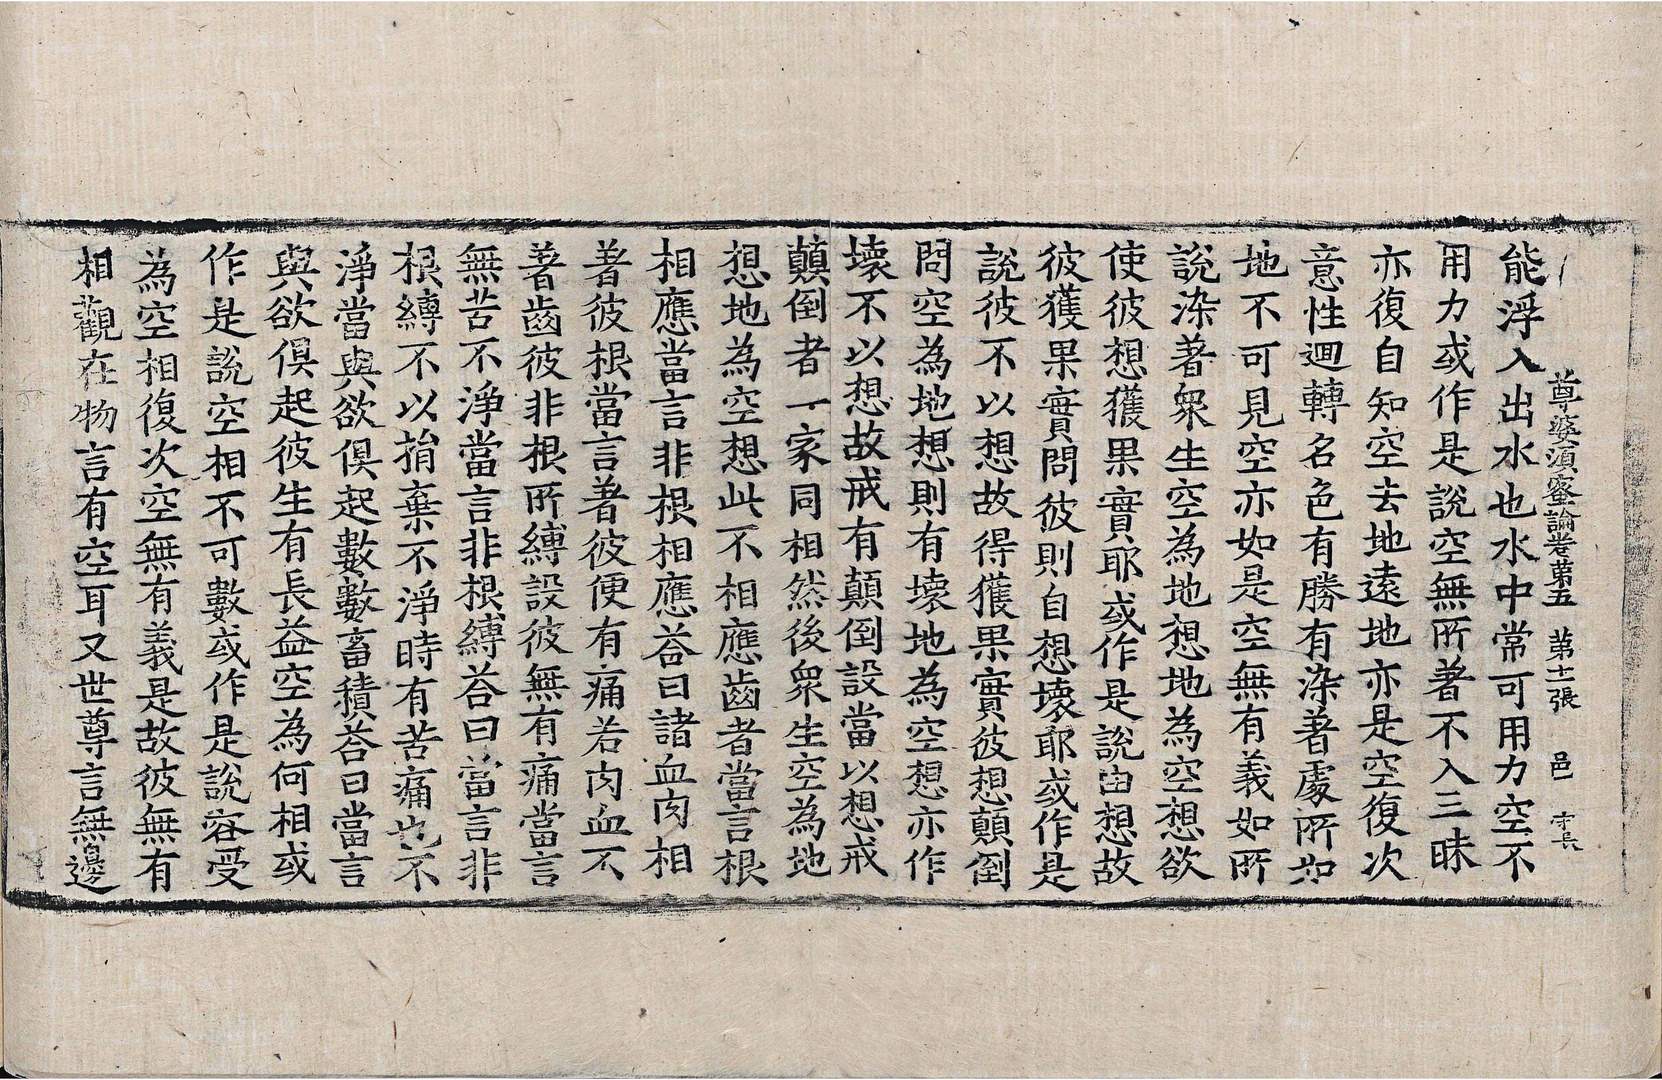 尊婆須蜜論卷第五　第十一張　邑　守長
能浮入出水也水中常可用力空不
用力或作是說空無所著不入三昧
亦復自知空去地遠地亦是空復次
意性迴轉名色有勝有染著處所如
地不可見空亦如是空無有義如所
說染著衆生空為地想地為空想欲
使彼想獲果實耶或作是說由想故
彼獲果實問彼則自想壞耶或作是
說彼不以想故得獲果實彼想顛倒
問空為地想則有壞地為空想亦作
壞不以想故戒有顛倒設當以想戒
顛倒者一家同相然後衆生空為地
想地為空想此不相應齒者當言根
相應當言非根相應荅曰諸血肉相
著彼根當言著彼便有痛若肉血不
著齒彼非根所縛設彼無有痛當言
無苦不淨當言非根縛荅曰當言非
根縛不以捐棄不淨時有苦痛也不
淨當與欲俱起數數畜積荅曰當言
與欲俱起彼生有長益空為何相或
作是說空相不可數或作是說容受
為空相復次空無有義是故彼無有
相觀在物言有空耳又世尊言無邊